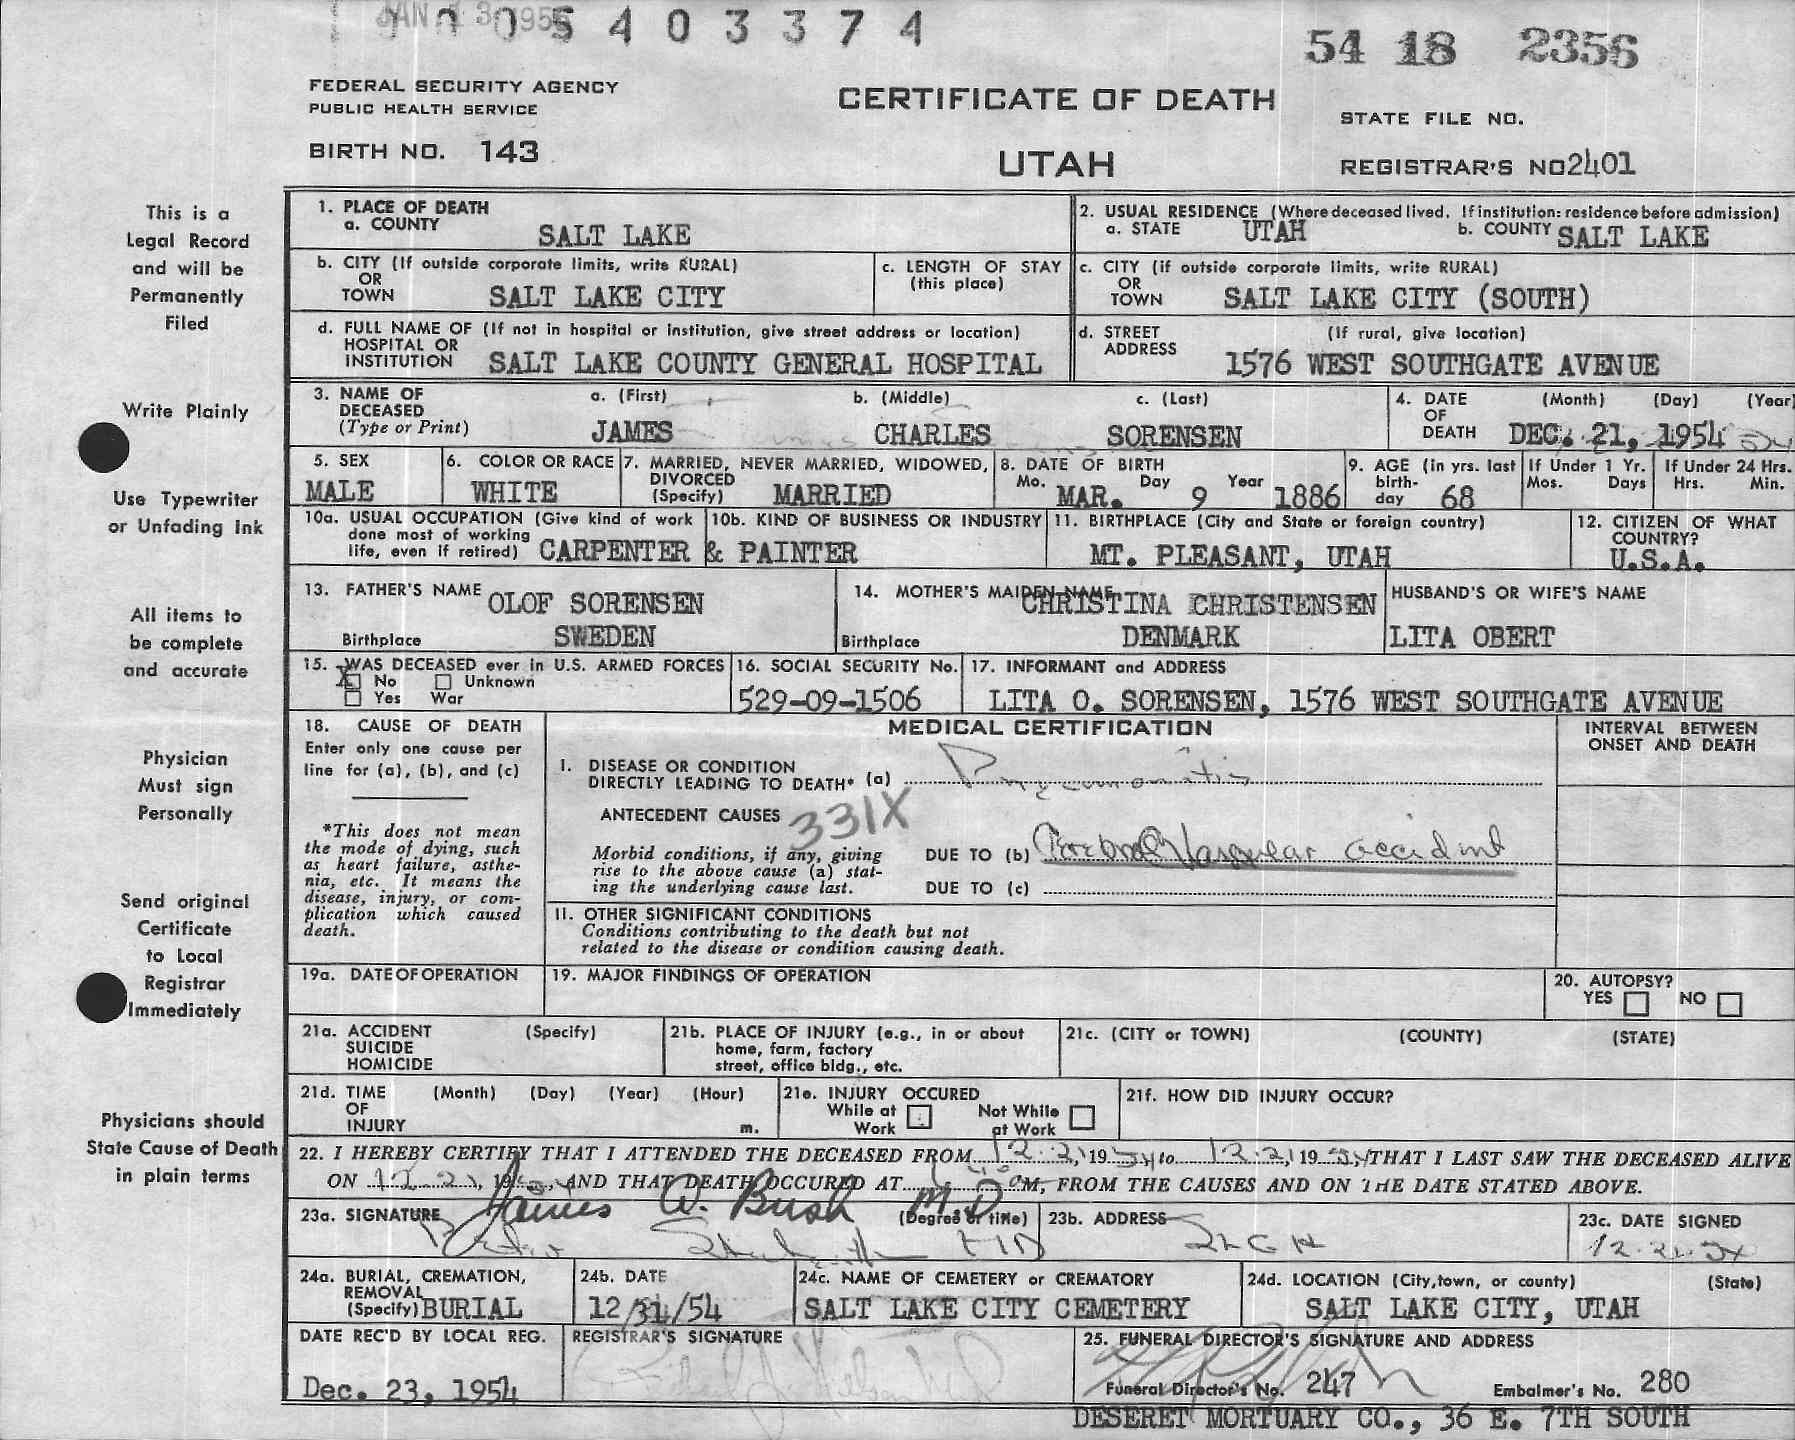 JAN. 13 1955
0 0 5 4 0 3 3 7 4
54 18 2356
FEDERAL SECURITY AGENCY
PUBLIC HEALTH SERVICE
CERTIFICATE OF DEATH
STATE FILE NO.
BIRTH NO. 143
UTAH
REGISTRAR'S NO 2401
This is a
Legal Record
and will be
Permanently
Filed
Write Plainly
Use Typewriter
or Unfading Ink
All items to
be complete
and accurate
Physician
Must sign
Personally
Send original
Certificate
to Local
Registrar
Immediately
Physicians should
State Cause of Death
in plain terms
1. PLACE OF DEATH
a. COUNTY SALT LAKE
2. USUAL RESIDENCE (Where deceased lived. If institution: residence before admission)
a. STATE UTAH b. COUNTY SALT LAKE
b. CITY (If outside corporate limits, write RURAL)
OR
TOWN SALT LAKE CITY
c. LENGTH OF STAY
(this place)
c. CITY (if outside corporate limits, write RURAL)
OR
TOWN SALT LAKE CITY (SOUTH)
d. FULL NAME OF (If not in hospital or institution, give street address or location)
HOSPITAL OR
INSTITUTION SALT LAKE COUNTY GENERAL HOSPITAL
d. STREET (If rural, give location)
ADDRESS 1576 WEST SOUTHGATE AVENUE
3. NAME OF a. (First) b. (Middle) c. (Last)
DECEASED
(Type or Print) JAMES CHARLES SORENSEN
4. DATE (Month) (Day) (Year)
OF
DEATH DEC. 21, 1954 54
5. SEX
MALE
6. COLOR OR RACE
WHITE
7. MARRIED, NEVER MARRIED, WIDOWED,
DIVORCED
(Specify) MARRIED
8. DATE OF BIRTH
Mo. MAR. Day 9 Year 1886
9. AGE (in yrs. last
birth-
day 68
If Under 1 Yr.
Mos. Days
If Under 24 Hrs.
Hrs. Min.
10a. USUAL OCCUPATION (Give kind of work
done most of working
life, even if retired) CARPENTER & PAINTER
10b. KIND OF BUSINESS OR INDUSTRY
11. BIRTHPLACE (City and State or foreign country)
MT. PLEASANT, UTAH
12. CITIZEN OF WHAT
COUNTRY?
U.S.A.
13. FATHER'S NAME OLOF SORENSEN
Birthplace SWEDEN
14. MOTHER'S MAIDEN NAME CHRISTINA CHRISTENSEN
Birthplace DENMARK
HUSBAND'S OR WIFE'S NAME
LITA OBERT
15. WAS DECEASED ever in U.S. ARMED FORCES
X No Unknown
Yes War
16. SOCIAL SECURITY No.
529-09-1506
17. INFORMANT and ADDRESS
LITA O. SORENSEN, 1576 WEST SOUTHGATE AVENUE
18. CAUSE OF DEATH
Enter only one cause per
line for (a), (b), and (c)
*This does not mean
the mode of dying, such
as heart failure, asthe-
nia, etc. It means the
disease, injury, or com-
plication which caused
death.
MEDICAL CERTIFICATION
INTERVAL BETWEEN
ONSET AND DEATH
I. DISEASE OR CONDITION
DIRECTLY LEADING TO DEATH* (a)
ANTECEDENT CAUSES 331X
Morbid conditions, if any, giving
rise to the above cause (a) stat-
ing the underlying cause last.
DUE TO (b) Cerebral Vascular accident
DUE TO (c)
II. OTHER SIGNIFICANT CONDITIONS
Conditions contributing to the death but not
related to the disease or condition causing death.
19a. DATE OF OPERATION
19. MAJOR FINDINGS OF OPERATION
20. AUTOPSY?
YES NO
21a. ACCIDENT (Specify)
SUICIDE
HOMICIDE
21b. PLACE OF INJURY (e.g., in or about
home, farm, factory
street, office bldg., etc.
21c. (CITY or TOWN) (COUNTY) (STATE)
21d. TIME (Month) (Day) (Year) (Hour)
OF
INJURY m.
21e. INJURY OCCURED
While at Not While
Work at Work
21f. HOW DID INJURY OCCUR?
22. I HEREBY CERTIFY THAT I ATTENDED THE DECEASED FROM 12.21, 1954 to 12.21, 1954, THAT I LAST SAW THE DECEASED ALIVE
ON 12.21, 1954, AND THAT DEATH OCCURED AT M, FROM THE CAUSES AND ON THE DATE STATED ABOVE.
James A. Bush M.D
23a. SIGNATURE (Degree or title)
MD
23b. ADDRESS
SLGH
23c. DATE SIGNED
12.21.54
24a. BURIAL, CREMATION,
REMOVAL
(Specify) BURIAL
24b. DATE
12/31/54
24c. NAME OF CEMETERY or CREMATORY
SALT LAKE CITY CEMETERY
24d. LOCATION (City, town, or county) (State)
SALT LAKE CITY, UTAH
DATE REC'D BY LOCAL REG.
Dec. 23, 1954
REGISTRAR'S SIGNATURE
25. FUNERAL DIRECTOR'S SIGNATURE AND ADDRESS
Funeral Director's No. 247 Embalmer's No. 280
DESERET MORTUARY CO., 36 E. 7TH SOUTH